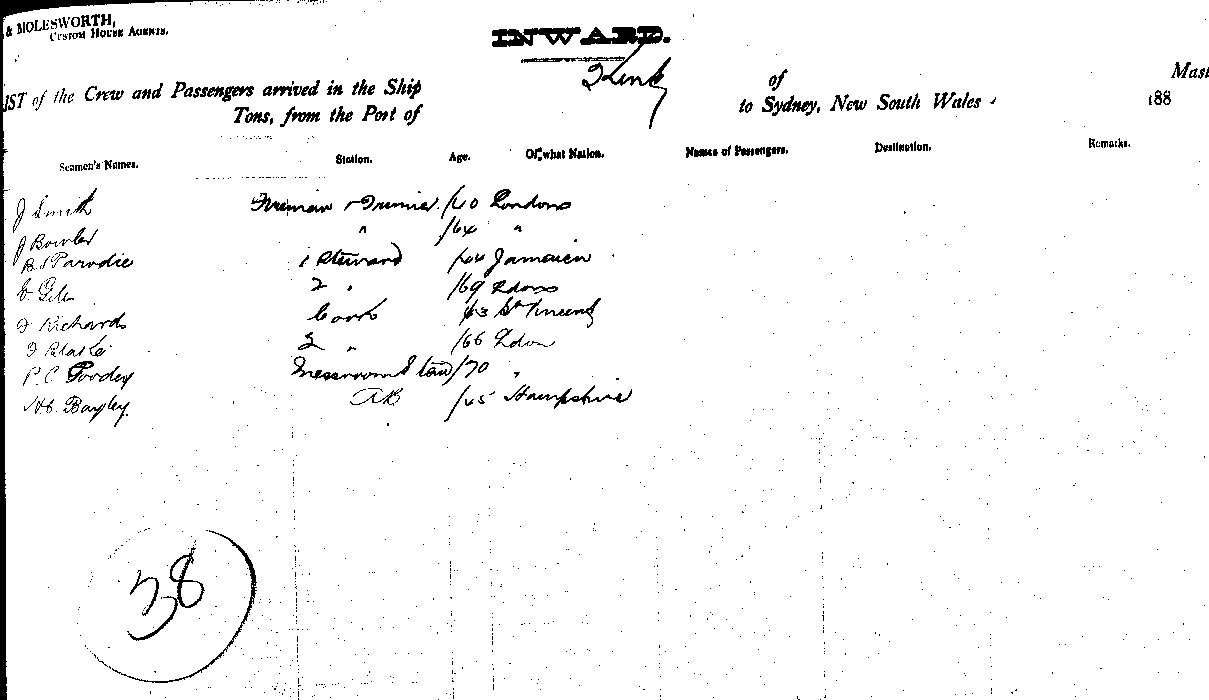 & MOLESWORTH,
CUSTOM HOUSE AGENTS.
INWARD.
IST of the Crew and Passengers arrived in the Ship of Mast
Tons, from the Port of to Sydney, New South Wales 188
Seamen's Names. Station. Age. Of what Nation. Names of Passengers. Destination. Remarks.
J Smith Fireman & Trimmer /40 London
J Bowler " /64 "
Parodie 1 Steward /44 Jamaica
2 " /69 Ldon
Richards Cook /63 St Vincent
2 " /66 Ldon
P. C. Goodey Messroom Stew /70 "
Bayley. AB /45 Hampshire
38